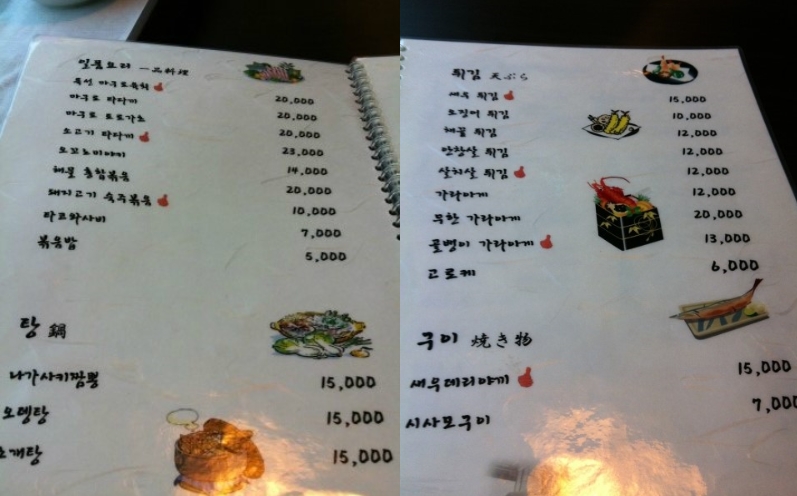 일품요리 一品料理
특선 마구로육회 20,000
마구로 타다끼 20,000
마구로 도로가츠 20,000
소고기 타다끼 23,000
오꼬노미야끼 14,000
해물 종합볶음 20,000
돼지고기 숙주볶음 10,000
타코와사비 7,000
볶음밥 5,000
탕 鍋
나가사키짬뽕 15,000
오뎅탕 15,000
조개탕 15,000
튀김 天ぷら
새우 튀김 15,000
오징어 튀김 10,000
해물 튀김 12,000
안창살 튀김 12,000
살치살 튀김 12,000
가라아게 12,000
무한 가라아게 20,000
골뱅이 가라아게 13,000
고로케 6,000
구이 焼き物
새우데리야끼 15,000
시사모구이 7,000